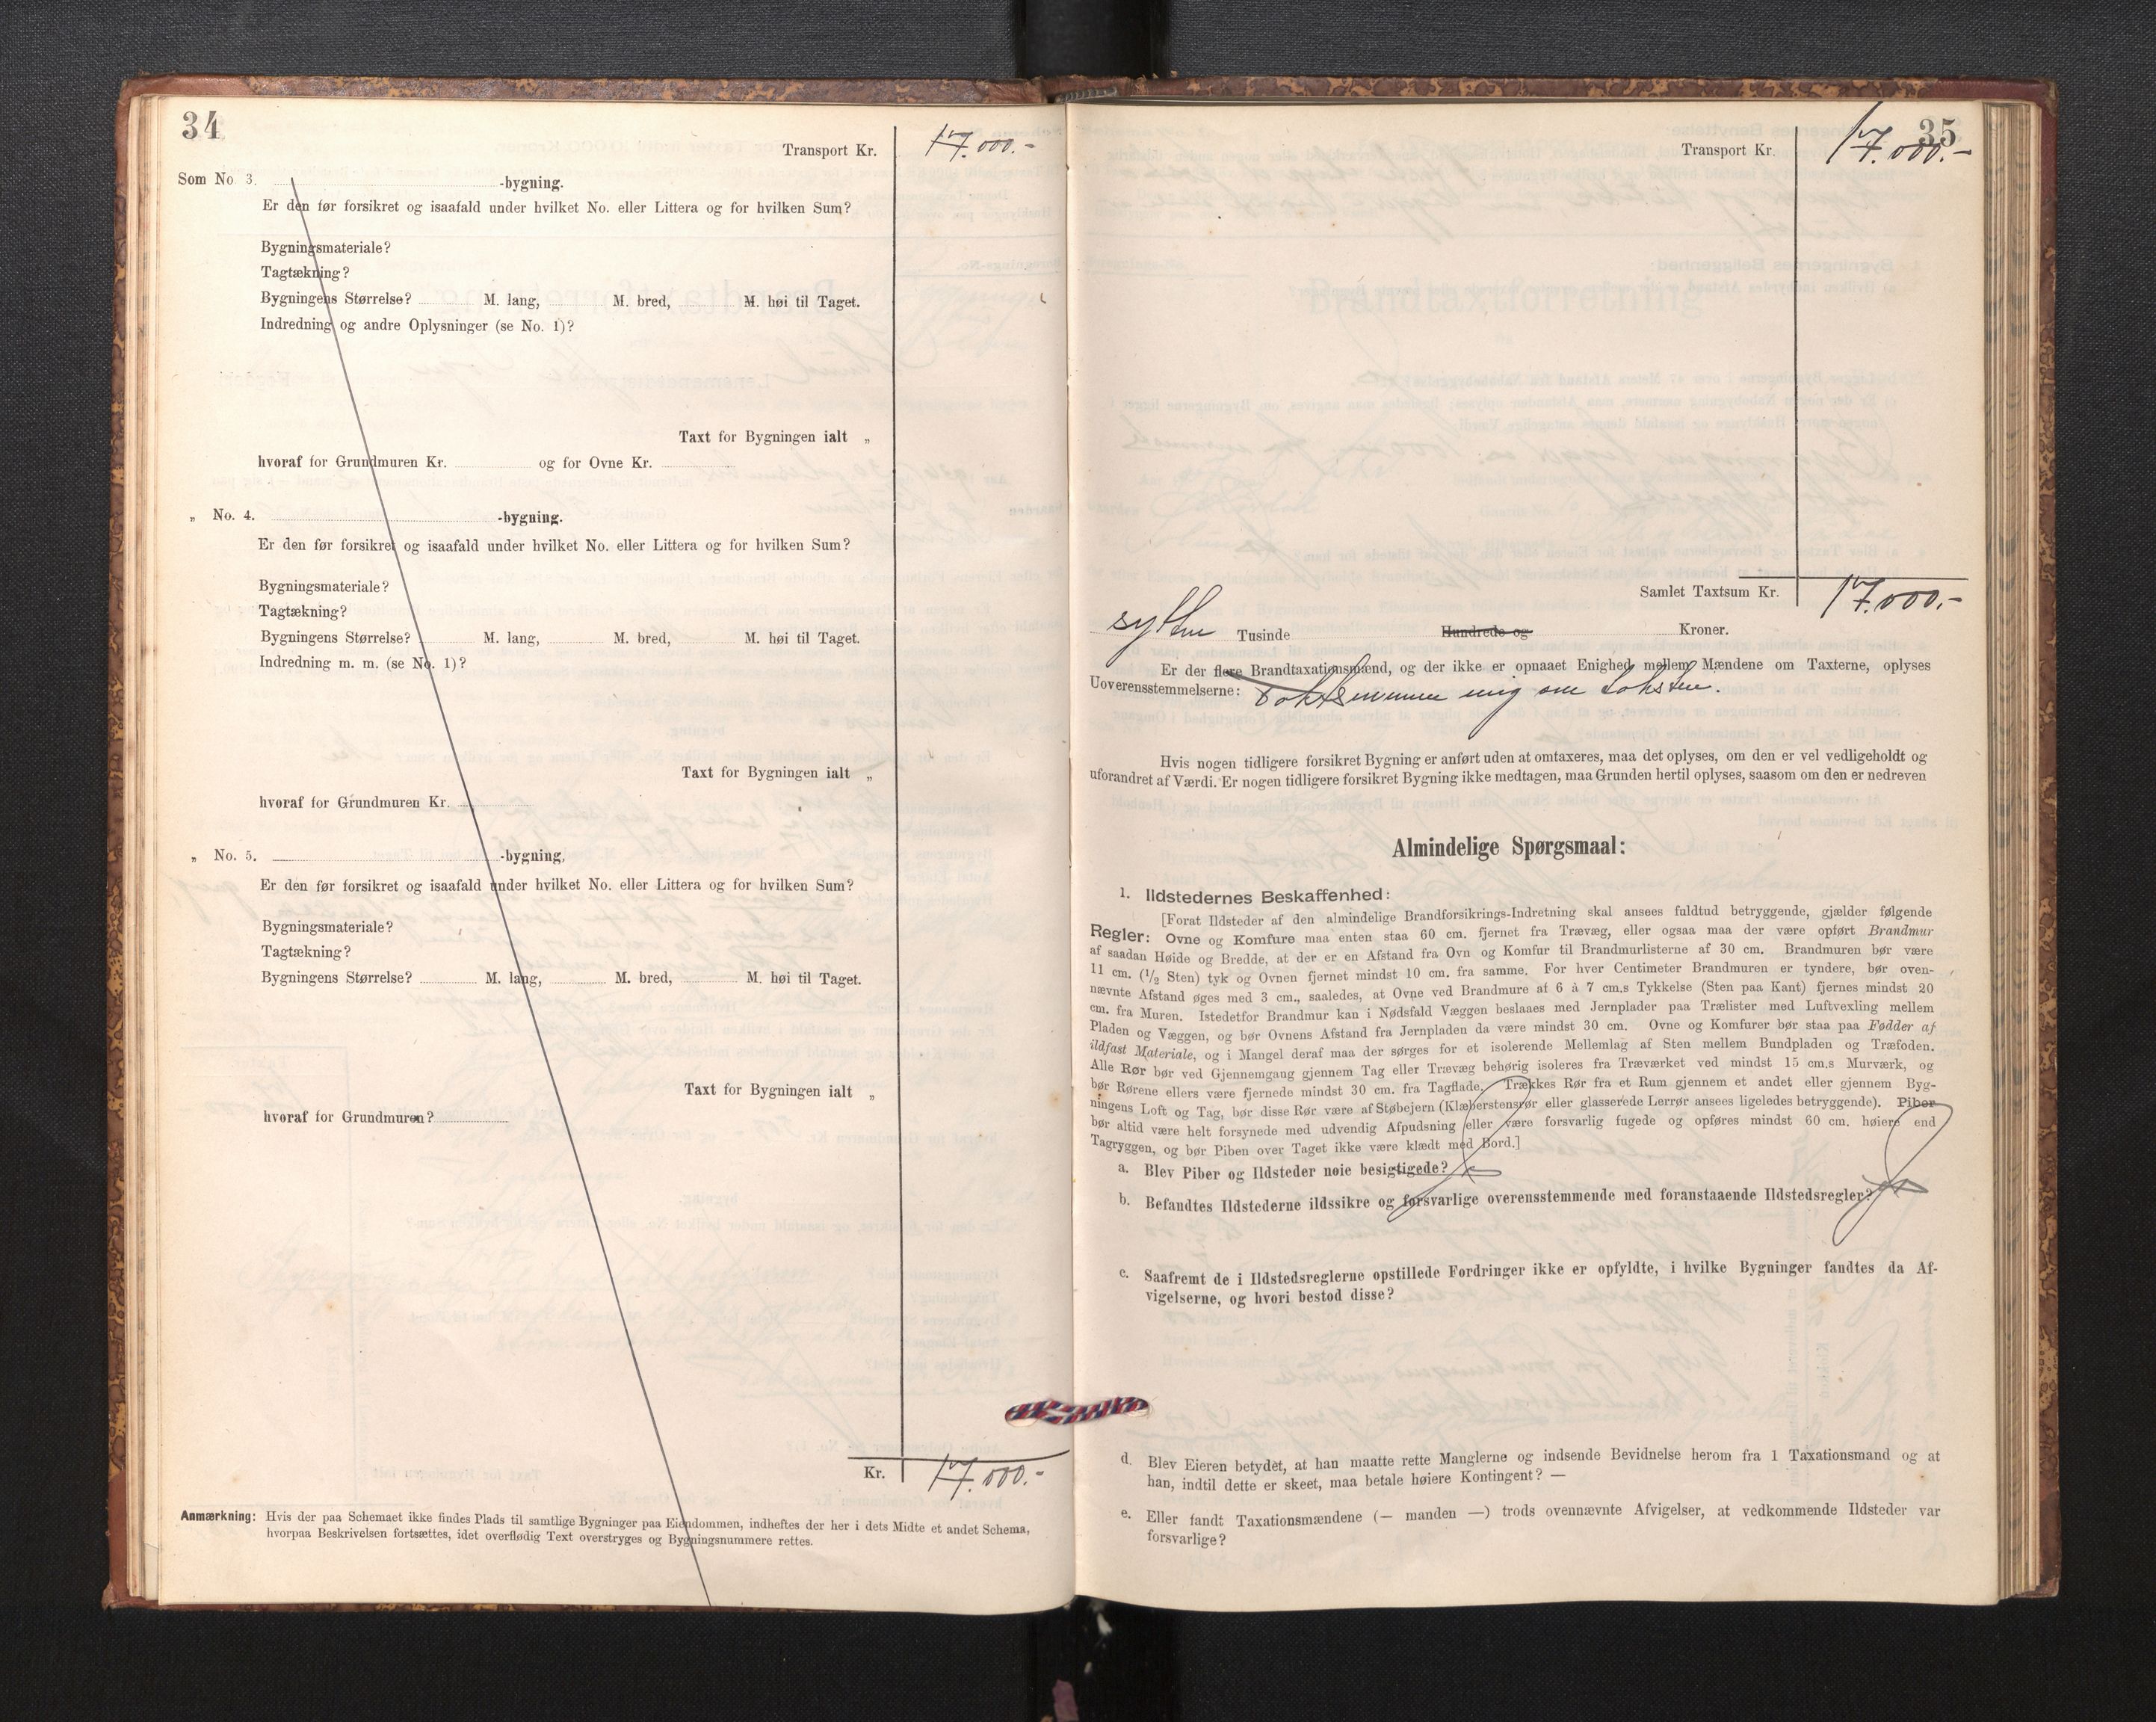 34
Transport Kr. 17.000.-
Som No 3. -bygning.
Er den før forsikret og isaafald under hvilket No. eller Littera og for hvilken Sum?
Bygningsmateriale?
Tagtækning?
Bygningens Størrelse? M. lang, M. bred, M. høi til Taget.
Indredning og andre Oplysninger (se No. 1)?
Taxt for Bygningen ialt „
hvoraf for Grundmuren Kr. og for Ovne Kr.
„ No. 4. -bygning.
Er den før forsikret og isaafald under hvilket No. eller Littera og for hvilken Sum?
Bygningsmateriale?
Tagtækning?
Bygningens Størrelse? M. lang, M. bred, M. høi til Taget.
Indredning m. m. (se No. 1)?
Taxt for Bygningen ialt „
hvoraf for Grundmuren Kr.
„ No. 5. -bygning,
Er den før forsikret og isaafald under hvilket No. eller Littera og for hvilken Sum?
Bygningsmateriale?
Tagtækning?
Bygningens Størrelse? M. lang, M. bred, M. høi til Taget.
Taxt for Bygningen ialt „
hvoraf for Grundmuren?
Kr. 17.000.-
Anmærkning: Hvis der paa Schemaet ikke findes Plads til samtlige Bygninger paa Eiendommen, indheftes der her i dets Midte et andet Schema,
hvorpaa Beskrivelsen fortsættes, idet overflødig Text overstryges og Bygningsnummere rettes.
35
Transport Kr. 17.000.-
Samlet Taxtsum Kr. 17.000.-
sytten Tusinde Hundrede og Kroner.
Er der flere Brandtaxationsmænd, og der ikke er opnaaet Enighed mellem Mændene om Taxterne, oplyses
Uoverensstemmelserne: enig om taksten.
Hvis nogen tidligere forsikret Bygning er anført uden at omtaxeres, maa det oplyses, om den er vel vedligeholdt og
uforandret af Værdi. Er nogen tidligere forsikret Bygning ikke medtagen, maa Grunden hertil oplyses, saasom om den er nedreven
Almindelige Spørgsmaal:
1. Ildstedernes Beskaffenhed:
[Forat Ildsteder af den almindelige Brandforsikrings-Indretning skal ansees fuldtud betryggende, gjælder følgende
Regler: Ovne og Komfure maa enten staa 60 cm. fjernet fra Trævæg, eller ogsaa maa der være opført Brandmur
af saadan Høide og Bredde, at der er en Afstand fra Ovn og Komfur til Brandmurlisterne af 30 cm. Brandmuren bør være
11 cm. (1/2 Sten) tyk og Ovnen fjernet mindst 10 cm. fra samme. For hver Centimeter Brandmuren er tyndere, bør oven-
nævnte Afstand øges med 3 cm., saaledes, at Ovne ved Brandmure af 6 à 7 cm.s Tykkelse (Sten paa Kant) fjernes mindst 20
cm. fra Muren. Istedetfor Brandmur kan i Nødsfald Væggen beslaaes med Jernplader paa Trælister med Luftvexling mellem
Pladen og Væggen, og bør Ovnens Afstand fra Jernpladen da være mindst 30 cm. Ovne og Komfurer bør staa paa Fødder af
ildfast Materiale, og i Mangel deraf maa der sørges for et isolerende Mellemlag af Sten mellem Bundpladen og Træfoden.
Alle Rør bør ved Gjennemgang gjennem Tag eller Trævæg behørig isoleres fra Træværket ved mindst 15 cm.s Murværk, og
bør Rørene ellers være fjernede mindst 30 cm. fra Tagflade. Trækkes Rør fra et Rum gjennem et andet eller gjennem Byg-
ningens Loft og Tag, bør disse Rør være af Støbejern (Klæberstensrør eller glasserede Lerrør ansees ligeledes betryggende). Piber
bør altid være helt forsynede med udvendig Afpudsning eller være forsvarlig fugede og opføres mindst 60 cm. høiere end
Tagryggen, og bør Piben over Taget ikke være klædt med Bord.]
a. Blev Piber og Ildsteder nøie besigtigede? ja
b. Befandtes Ildstederne ildssikre og forsvarlige overensstemmende med foranstaaende Ildstedsregler? ja
c. Saafremt de i Ildstedsreglerne opstillede Fordringer ikke er opfyldte, i hvilke Bygninger fandtes da Af-
vigelserne, og hvori bestod disse?
d. Blev Eieren betydet, at han maatte rette Manglerne og indsende Bevidnelse herom fra 1 Taxationsmand og at
han, indtil dette er skeet, maa betale høiere Kontingent? —
e. Eller fandt Taxationsmændene (— manden —) trods ovennævnte Afvigelser, at vedkommende Ildsteder var
forsvarlige?